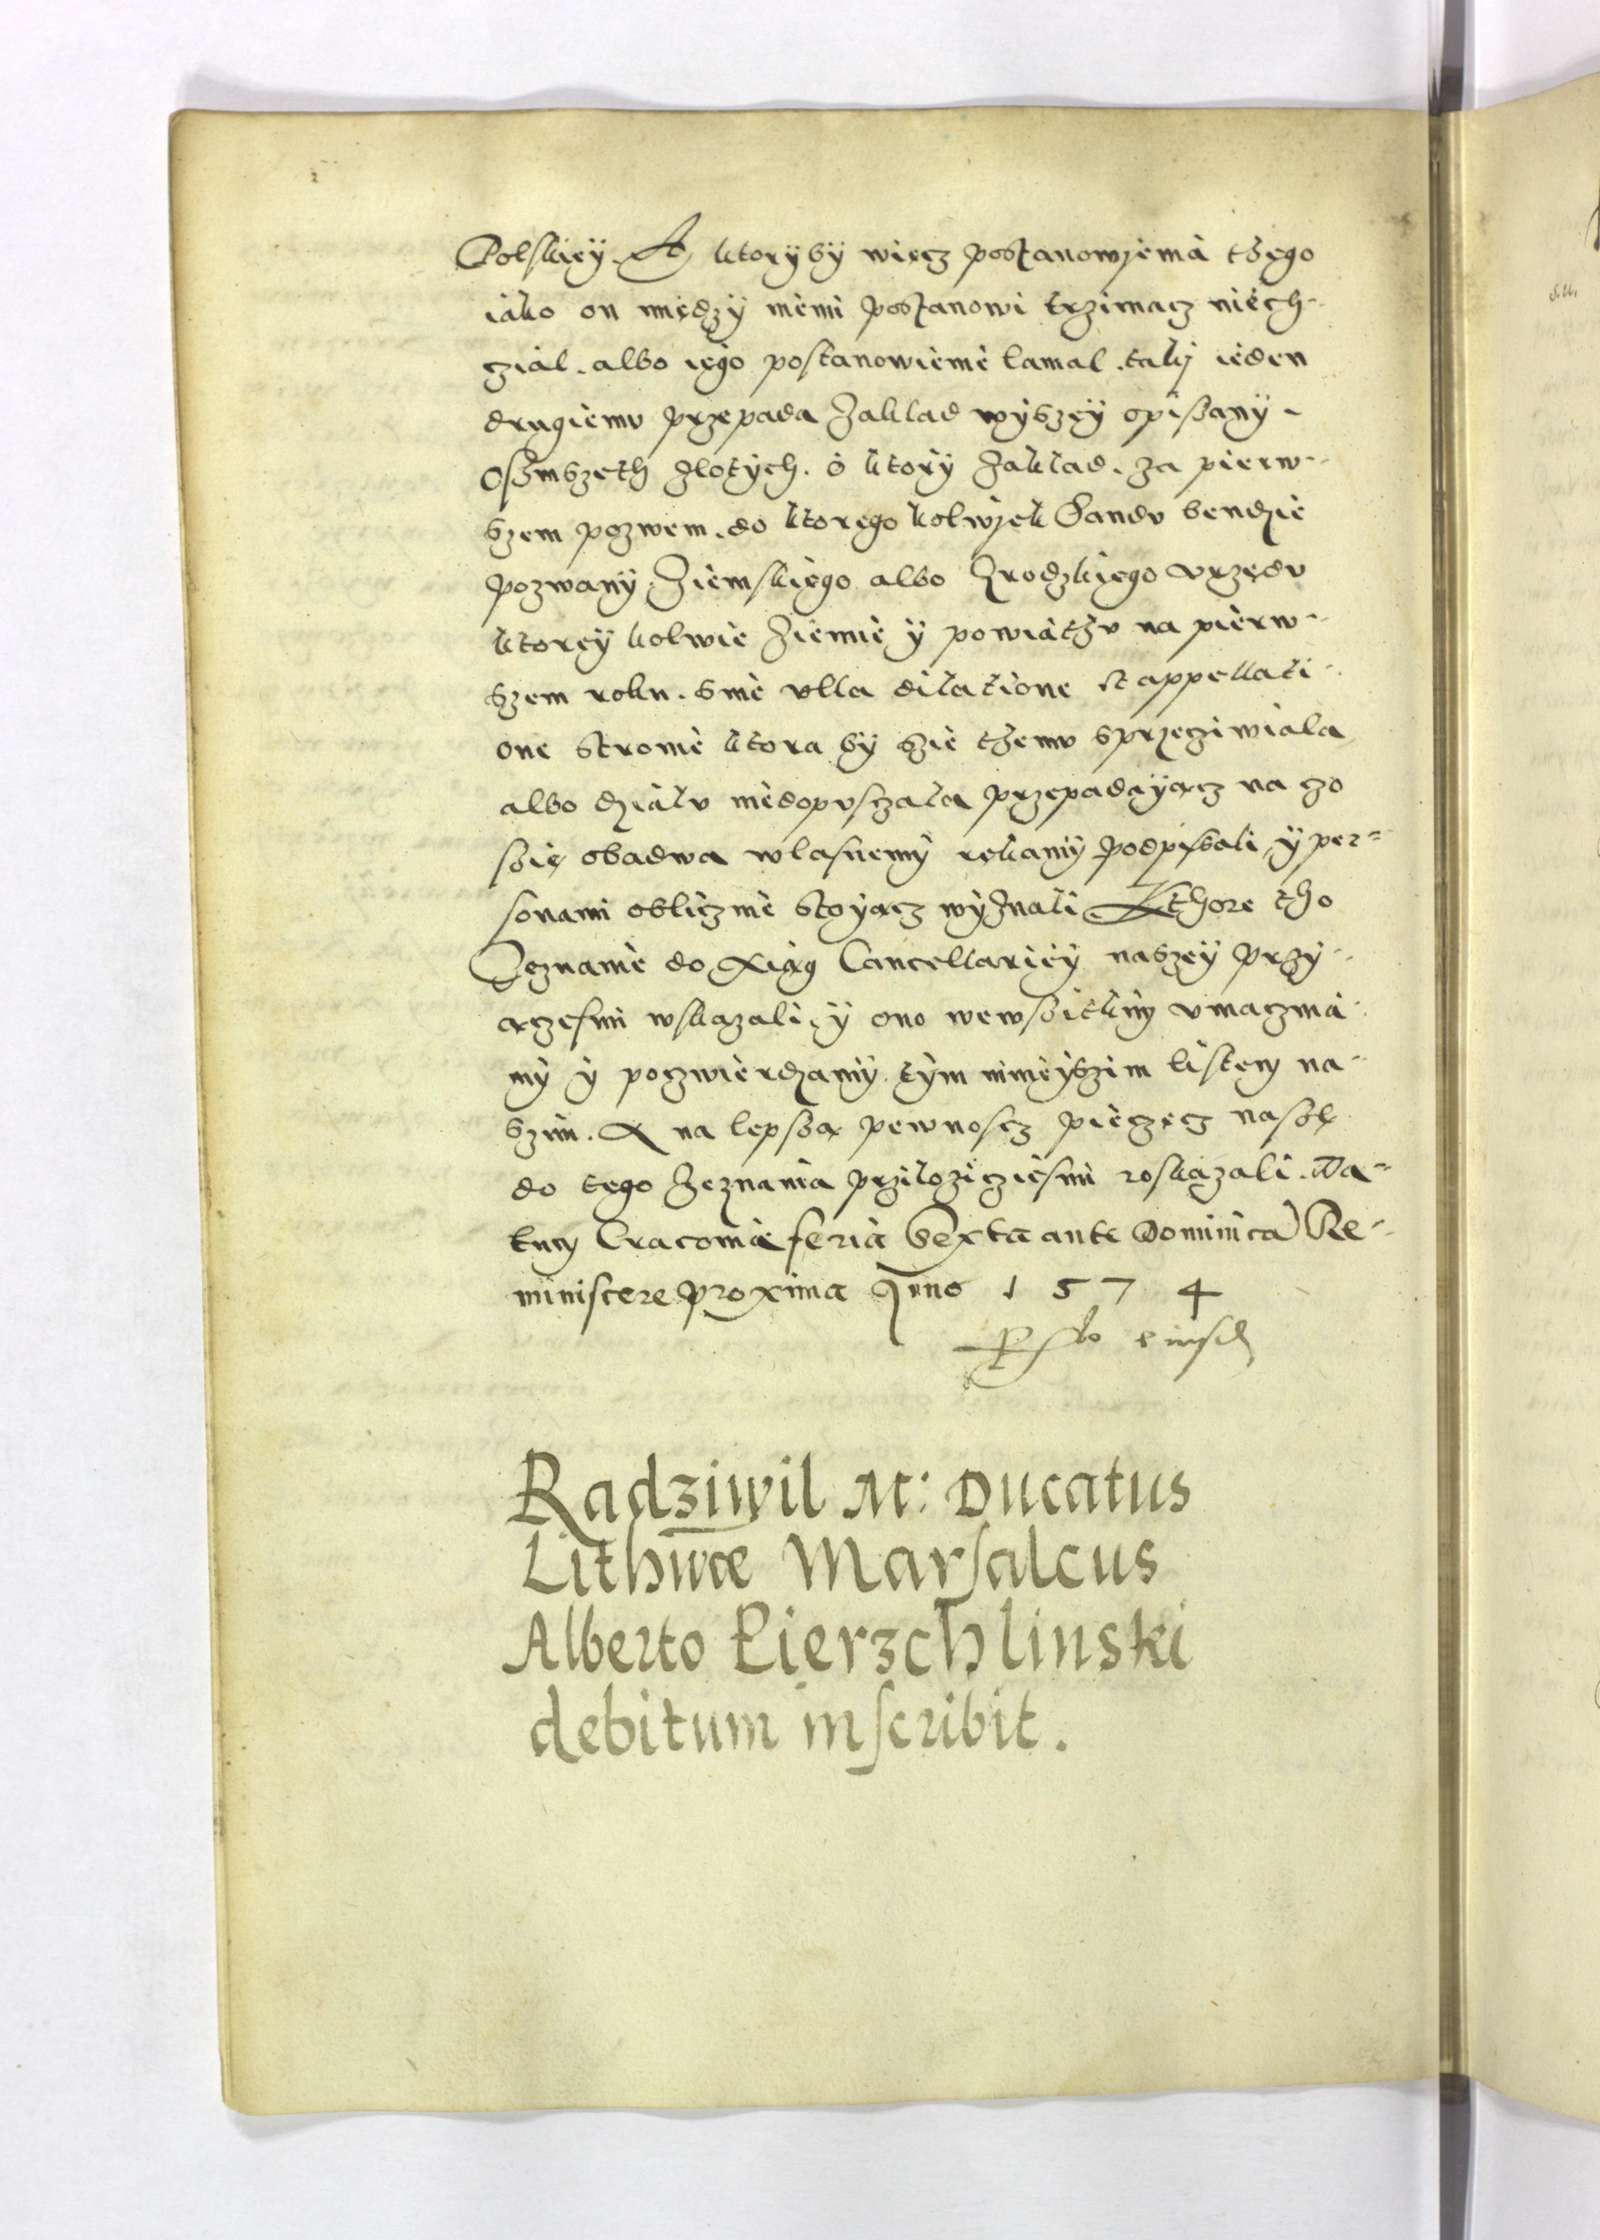 Polskiey. A ktoryby więcz postanowienia thego
iako on między niemi postanowi trzimacz niech-
czial. albo iego postanowienie lamal. taky ieden
drugiemu przepada zaklad wyszey opisany.
Osmszeth zlotych. o ktory zaklad. za pierw-
szem pozwem. do ktorego kolwiek Sandu bendzie
pozwany, Ziemskiego albo Grodzkiego urzędu
ktorey kolwie ziemie y powiathu na pierw-
szem roku. sine ulla dilatione et appellati-
one stronie ktora by szie themu sprzecziwiala
albo dzialu niedopusczala przepadayącz na czo
szie obadwa wlasnemy rękamy podpisali, y per-
sonami oblicznie stoyącz wyznali Kthore tho
Zeznanie do Xiąg Cancellariey naszey przy-
ączesmi wskazali, y ono wewszitkim umacznia-
my y poczwierdzamy tym ninieyszim listem na-
szim. A na lepszą pewnoscz pieczęcz naszę
do tego zeznania przilozicziesmi roskazali. Da-
tum Cracoviæ feria Sexta ante Dominica Re-
miniscere proxima Anno 1574
Radziwil M: Ducatus
Lithwæ Marsalcus
Alberto Pierzchlinski
debitum inscribit.